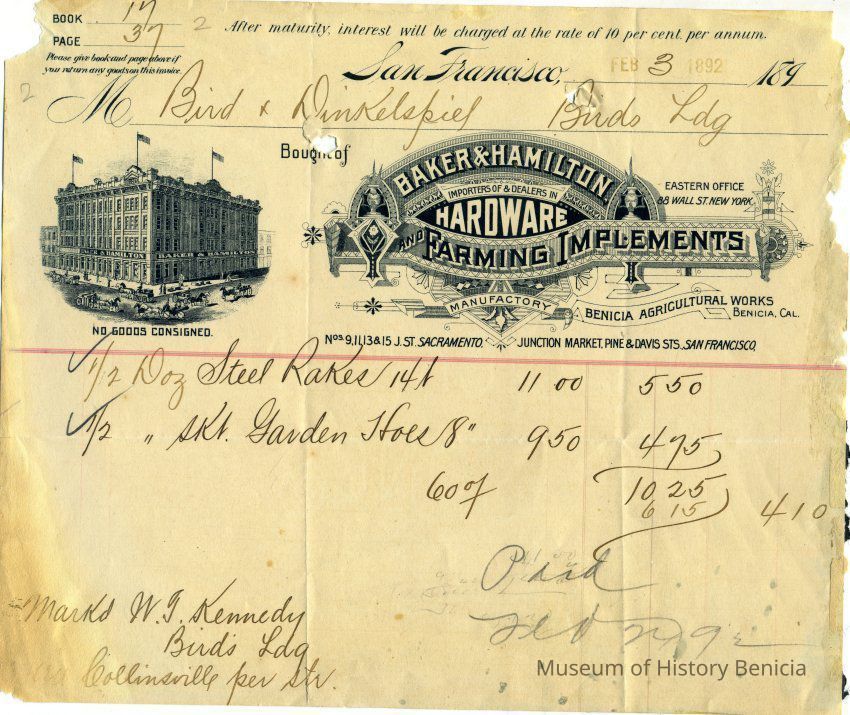 BOOK 17
PAGE 37
2
After maturity, interest will be charged at the rate of 10 per cent. per annum.
Please give book and page above if
you return any goods on this invoice.
San Francisco, FEB 3 1892 189
2
M Bird & Dinkelspiel Birds Ldg
Bought of
BAKER & HAMILTON,
IMPORTERS OF & DEALERS IN
HARDWARE
AND FARMING IMPLEMENTS
EASTERN OFFICE
88 WALL ST. NEW YORK.
BAKER & HAMILTON
MANUFACTORY
BENICIA AGRICULTURAL WORKS
BENICIA, CAL.
NO GOODS CONSIGNED.
Nos. 9, 11, 13 & 15 J. ST. SACRAMENTO. JUNCTION MARKET, PINE & DAVIS STS. SAN FRANCISCO,
1/2 Doz Steel Rakes 14t 11 00 5 50
1/2 " Skt. Garden Hoes 8" 9 50 4 75
60% 10 25
6 15 4 10
Paid
Mark'd W. T. Kennedy
Bird's Ldg
Collinsville per Str.
Museum of History Benicia